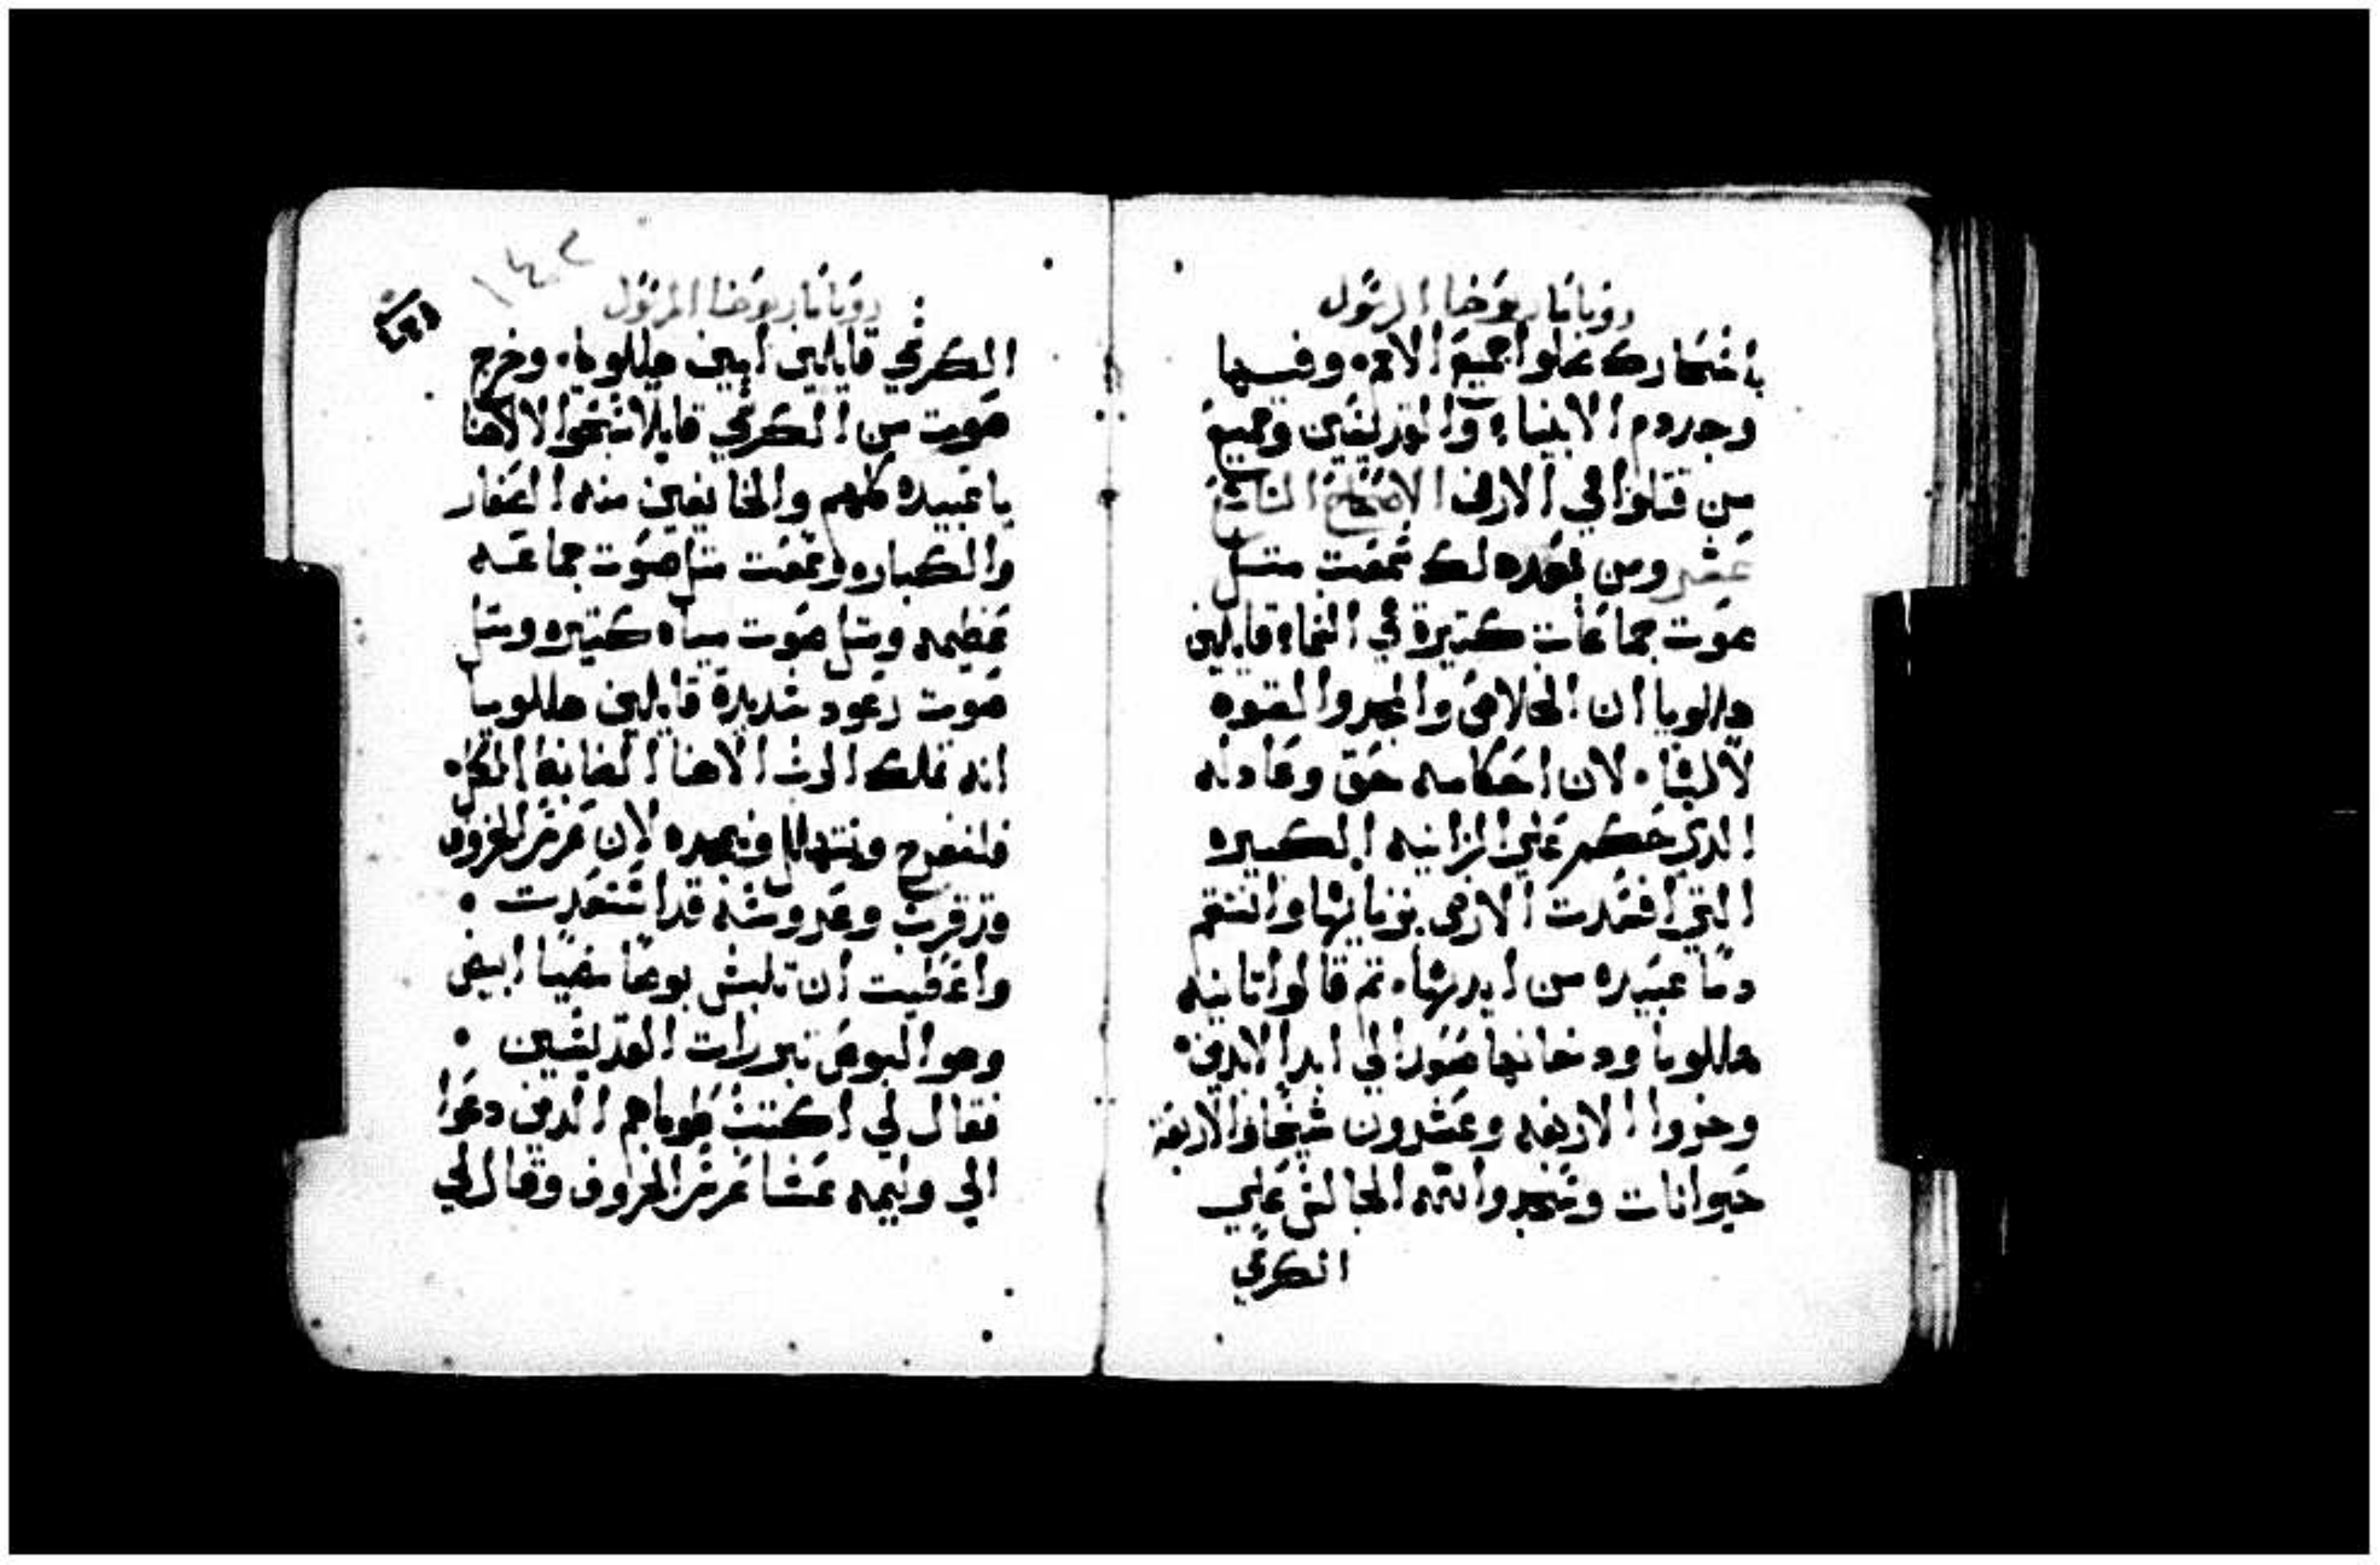 رويا مار يوحنا الرسول
باسحارك ضلوا جميع الامم. وفيها
وجد دم الانبياء والقديسين وجميع
من قتلوا في الارض الاصحاح التاسع
عشر ومن بعد دلك سمعت متل
صوت جماعات كتيرة في السماء قايلين
هللويا ان الخلاص والمجد والقوه
لالهنا. لان احكامه حق وعادله
الدي حكم علي الزانيه الكبيره
التي افسدت الارض بزناها وانتقم
دما عبيده من ايديها. تم قالوا تانيه
هللويا ودخانها صعد الي ابد الابدين.
وخروا الاربعه وعشرون شيخا والاربعة
حيوانات وسجدوا لله الجالس علي
الكرسي
١٤٢
رويا مار يوحنا الرسول
الكرسي قايلين امين هللويا. وخرج
صوت من الكرسي قايلا سبحوا لالاهنا
يا عبيده كلهم والخايفين منه الصغار
والكبار وسمعت متل صوت جماعه
عظيمه ومتل صوت مياه كتيره ومتل
صوت رعود شديدة قايلين هللويا
انه تملك الرب الاهنا الضابط الكل.
فلنفرح ونتهلل ونمجده لان عرس الخروف
قد قرب وعروسته قد استعدت.
واعطيت ان تلبس بوصا نقيا ابيض
وهو البوص تبررات القديسين.
فقال لي اكتب طوباهم الدين دعوا
الي وليمه عشا عرس الخروف وقال لي